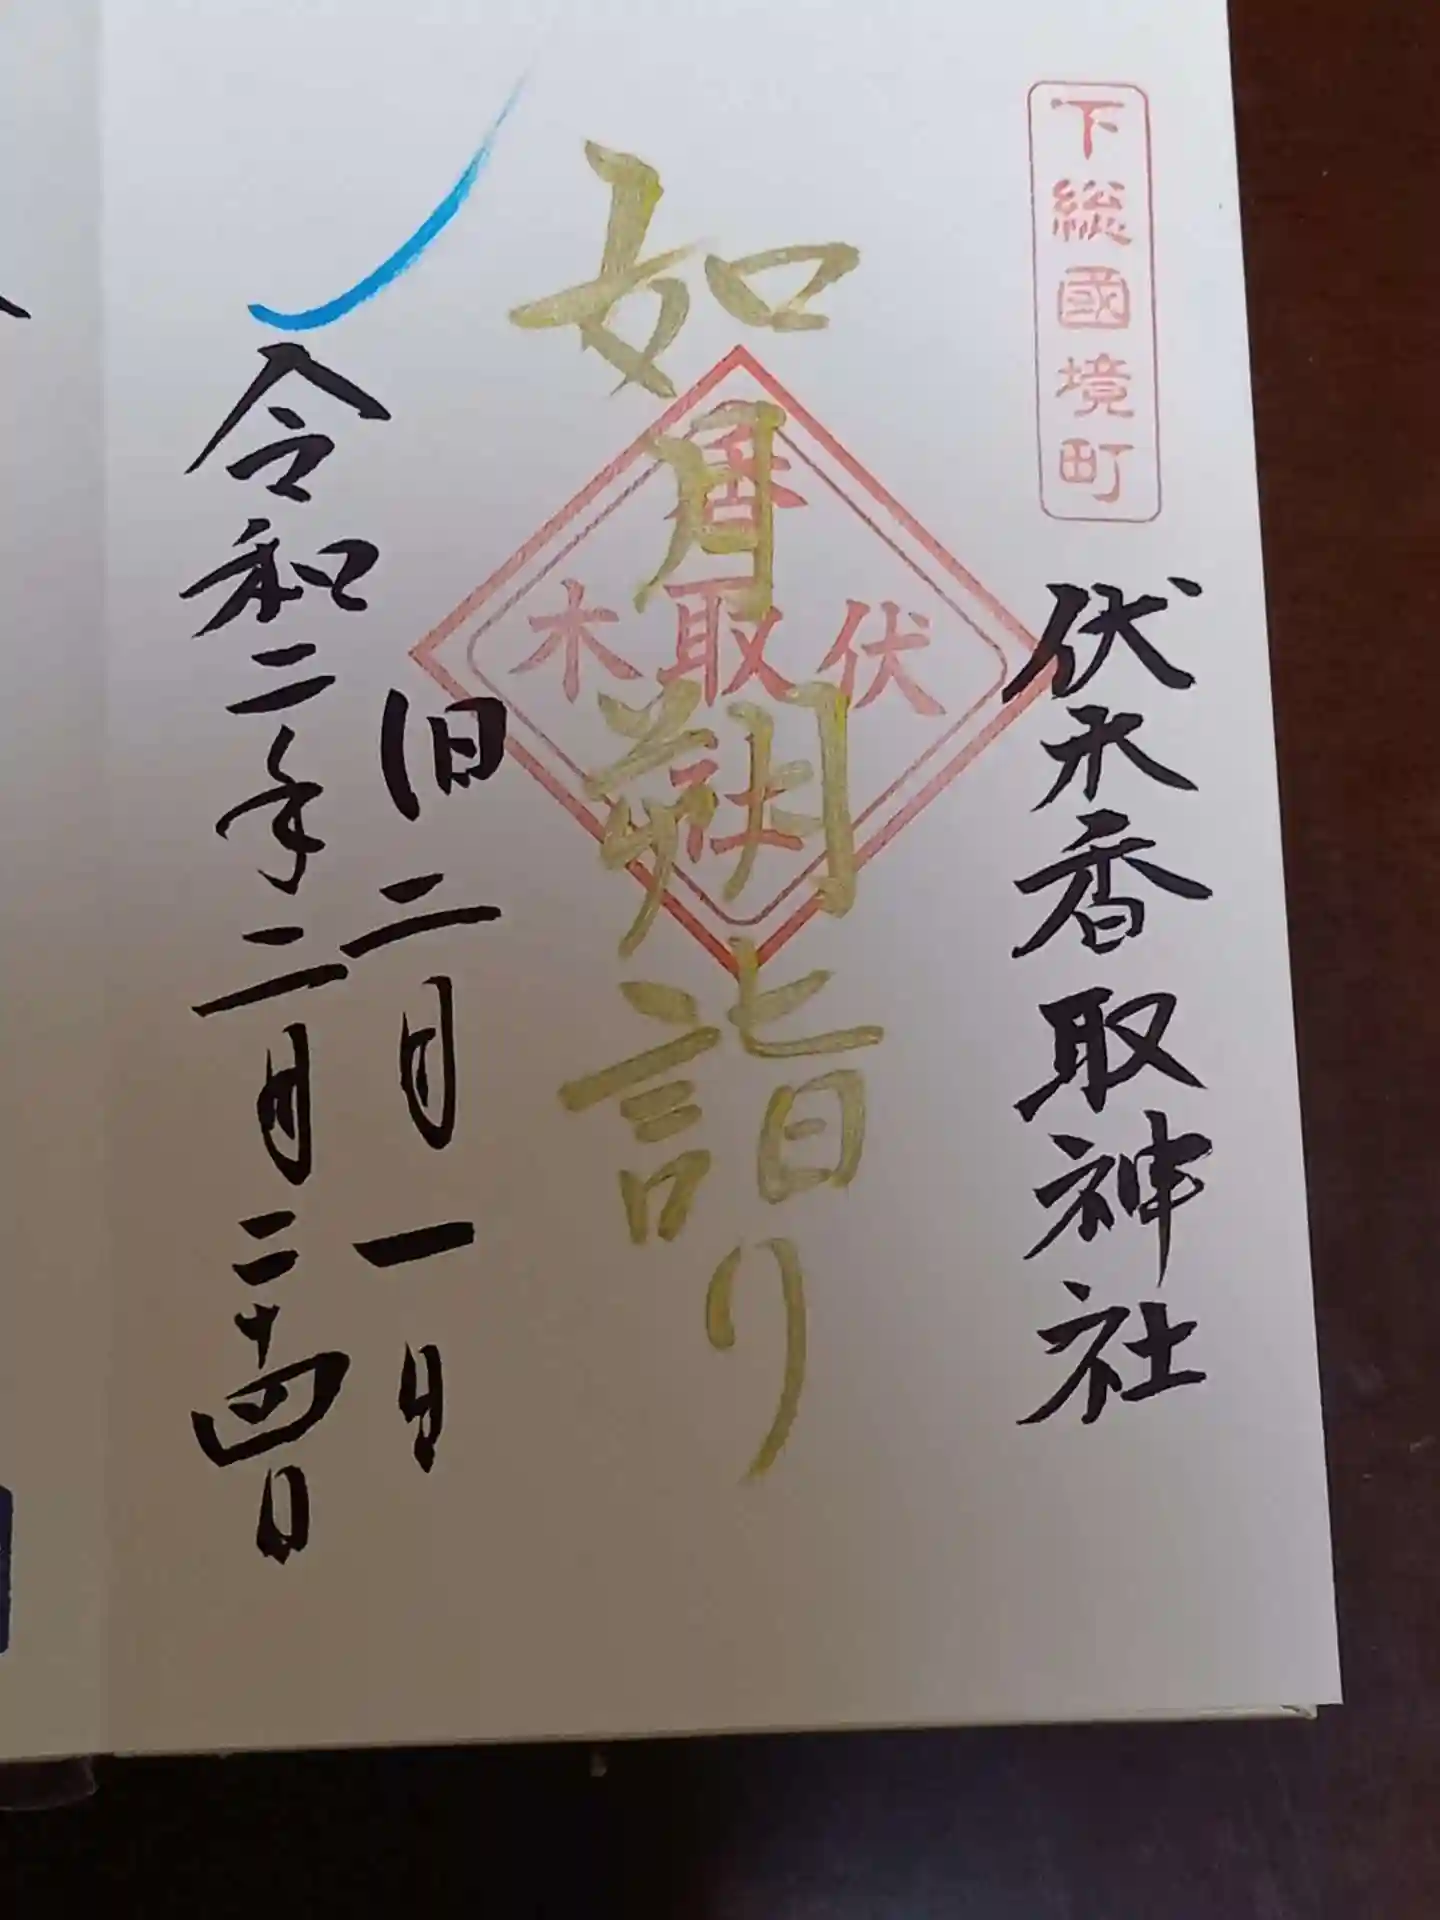 下総國境町
伏木香取神社
如月朔詣り
香
伏取木
社
旧二月一日
令和二年二月二十四日